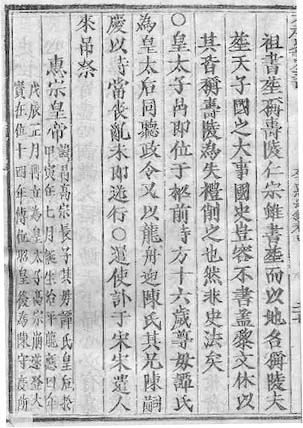 祖書葬稱壽陵仁宗雖書葬而以地名稱陵夫
葬天子國之大事國史豈容不書蓋黎文休以
其音稱壽陵為失禮削之也然非史法矣
○皇太子即位于柩前時方十六歲尊母譚氏
為皇太后同聽政令又以龍舟迎陳氏其兄陳嗣
慶以時當喪亂未即送行○遣使訃于宋宋遣人
來吊祭
惠宗皇帝
諱旵高宗長子其母譚氏皇后於
甲寅年七月誕生
戊辰正月冊立為皇太子高宗崩遂登大
寶在位十四年傳位昭皇後為陳守度所